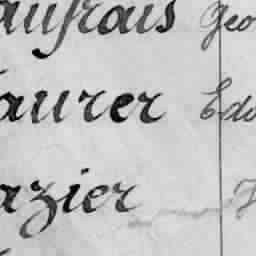 aufrais Geo
aurer Edo
azier